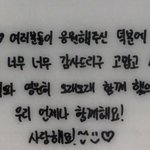 ♡ 여러분들이 응원해주신 덕분에
너무 너무 감사드리구 고맙고
와 영원히 오래오래 함께 했으
우리 언제나 함께해요!
사랑해요! ♡